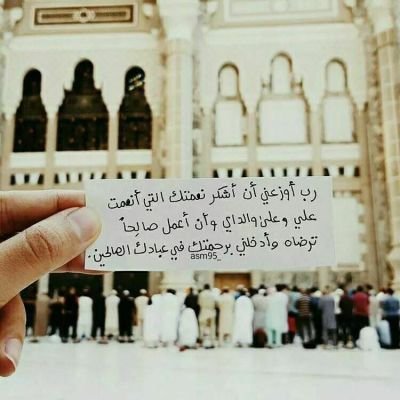 رب أوزعني أن أشكر نعمتك التي أنعمت
علي وعلى والداي وأن أعمل صالحاً
ترضاه وأدخلني برحمتك في عبادك الصالحين.
asm95_